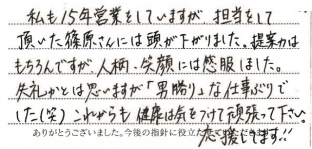 私も15年営業をしていますが、担当をして
頂いた篠原さんには頭が下がりました。提案力は
もちろんですが、人柄、笑顔には感服しました。
失礼かとは思いますが「男勝り」な仕事ぶりで
した(笑) これからも健康は気をつけて頑張って下さい。
ありがとうございました。今後の指針に役立た
応援してます!!